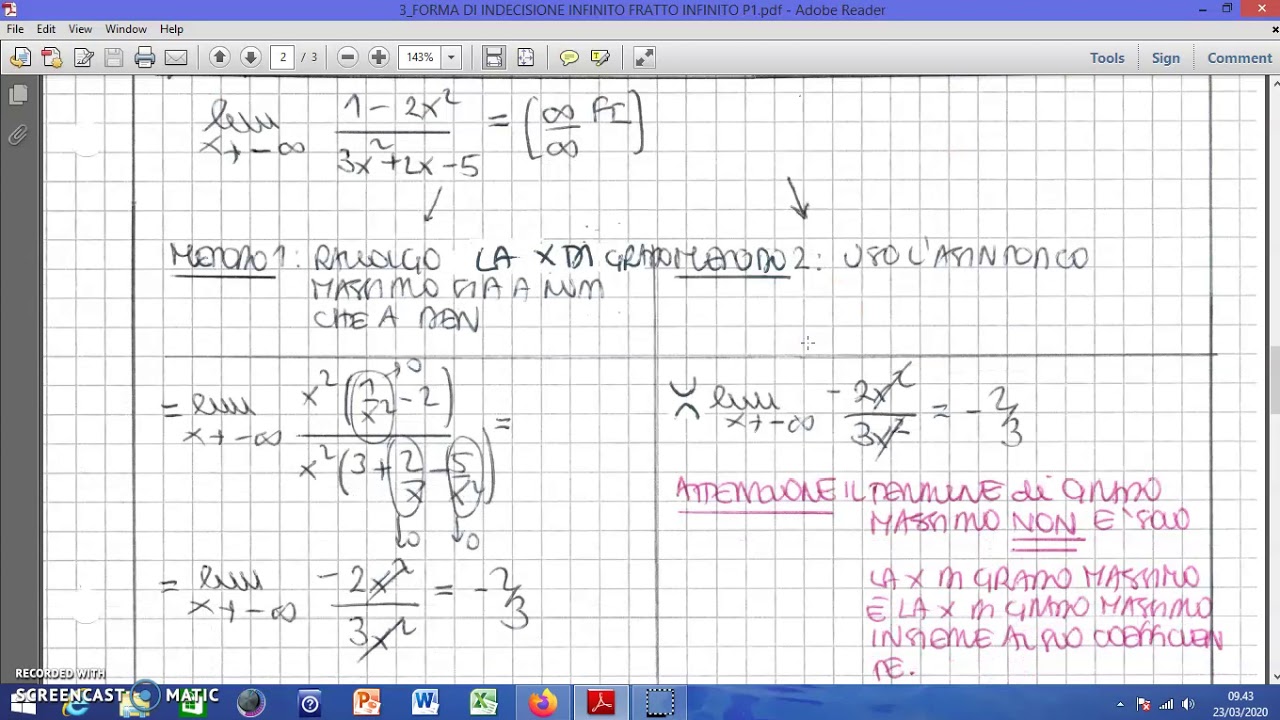 3_FORMA DI INDECISIONE INFINITO FRATTO INFINITO P1.pdf - Adobe Reader
File Edit View Window Help
2 / 3 143% Tools Sign Comment
lim x→-∞ (1 - 2x²)/(3x² + 2x - 5) = [∞/∞ FI]
METODO 1: RACCOLGO LA X DI GRADO
MASSIMO SIA A NUM
CHE A DEN
METODO 2: USO L'ASINTOTICO
= lim x→-∞ x²(1/x² - 2)/x²(3 + 2/x - 5/x²) =
→0
→0 →0
= lim x→-∞ -2x²/3x² = -2/3
lim x→-∞ -2x²/3x² = -2/3
ATTENZIONE IL TERMINE di GRADO
MASSIMO NON E' SOLO
LA X DI GRADO MASSIMO
E LA X DI GRADO MASSIMO
INSIEME AL SUO COEFFICIEN
TE.
RECORDED WITH
SCREENCAST MATIC
09.43
23/03/2020